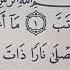 وَتَبَّ ١ مَآ أَ
صْلَىٰ نَارًا ذَاتَ